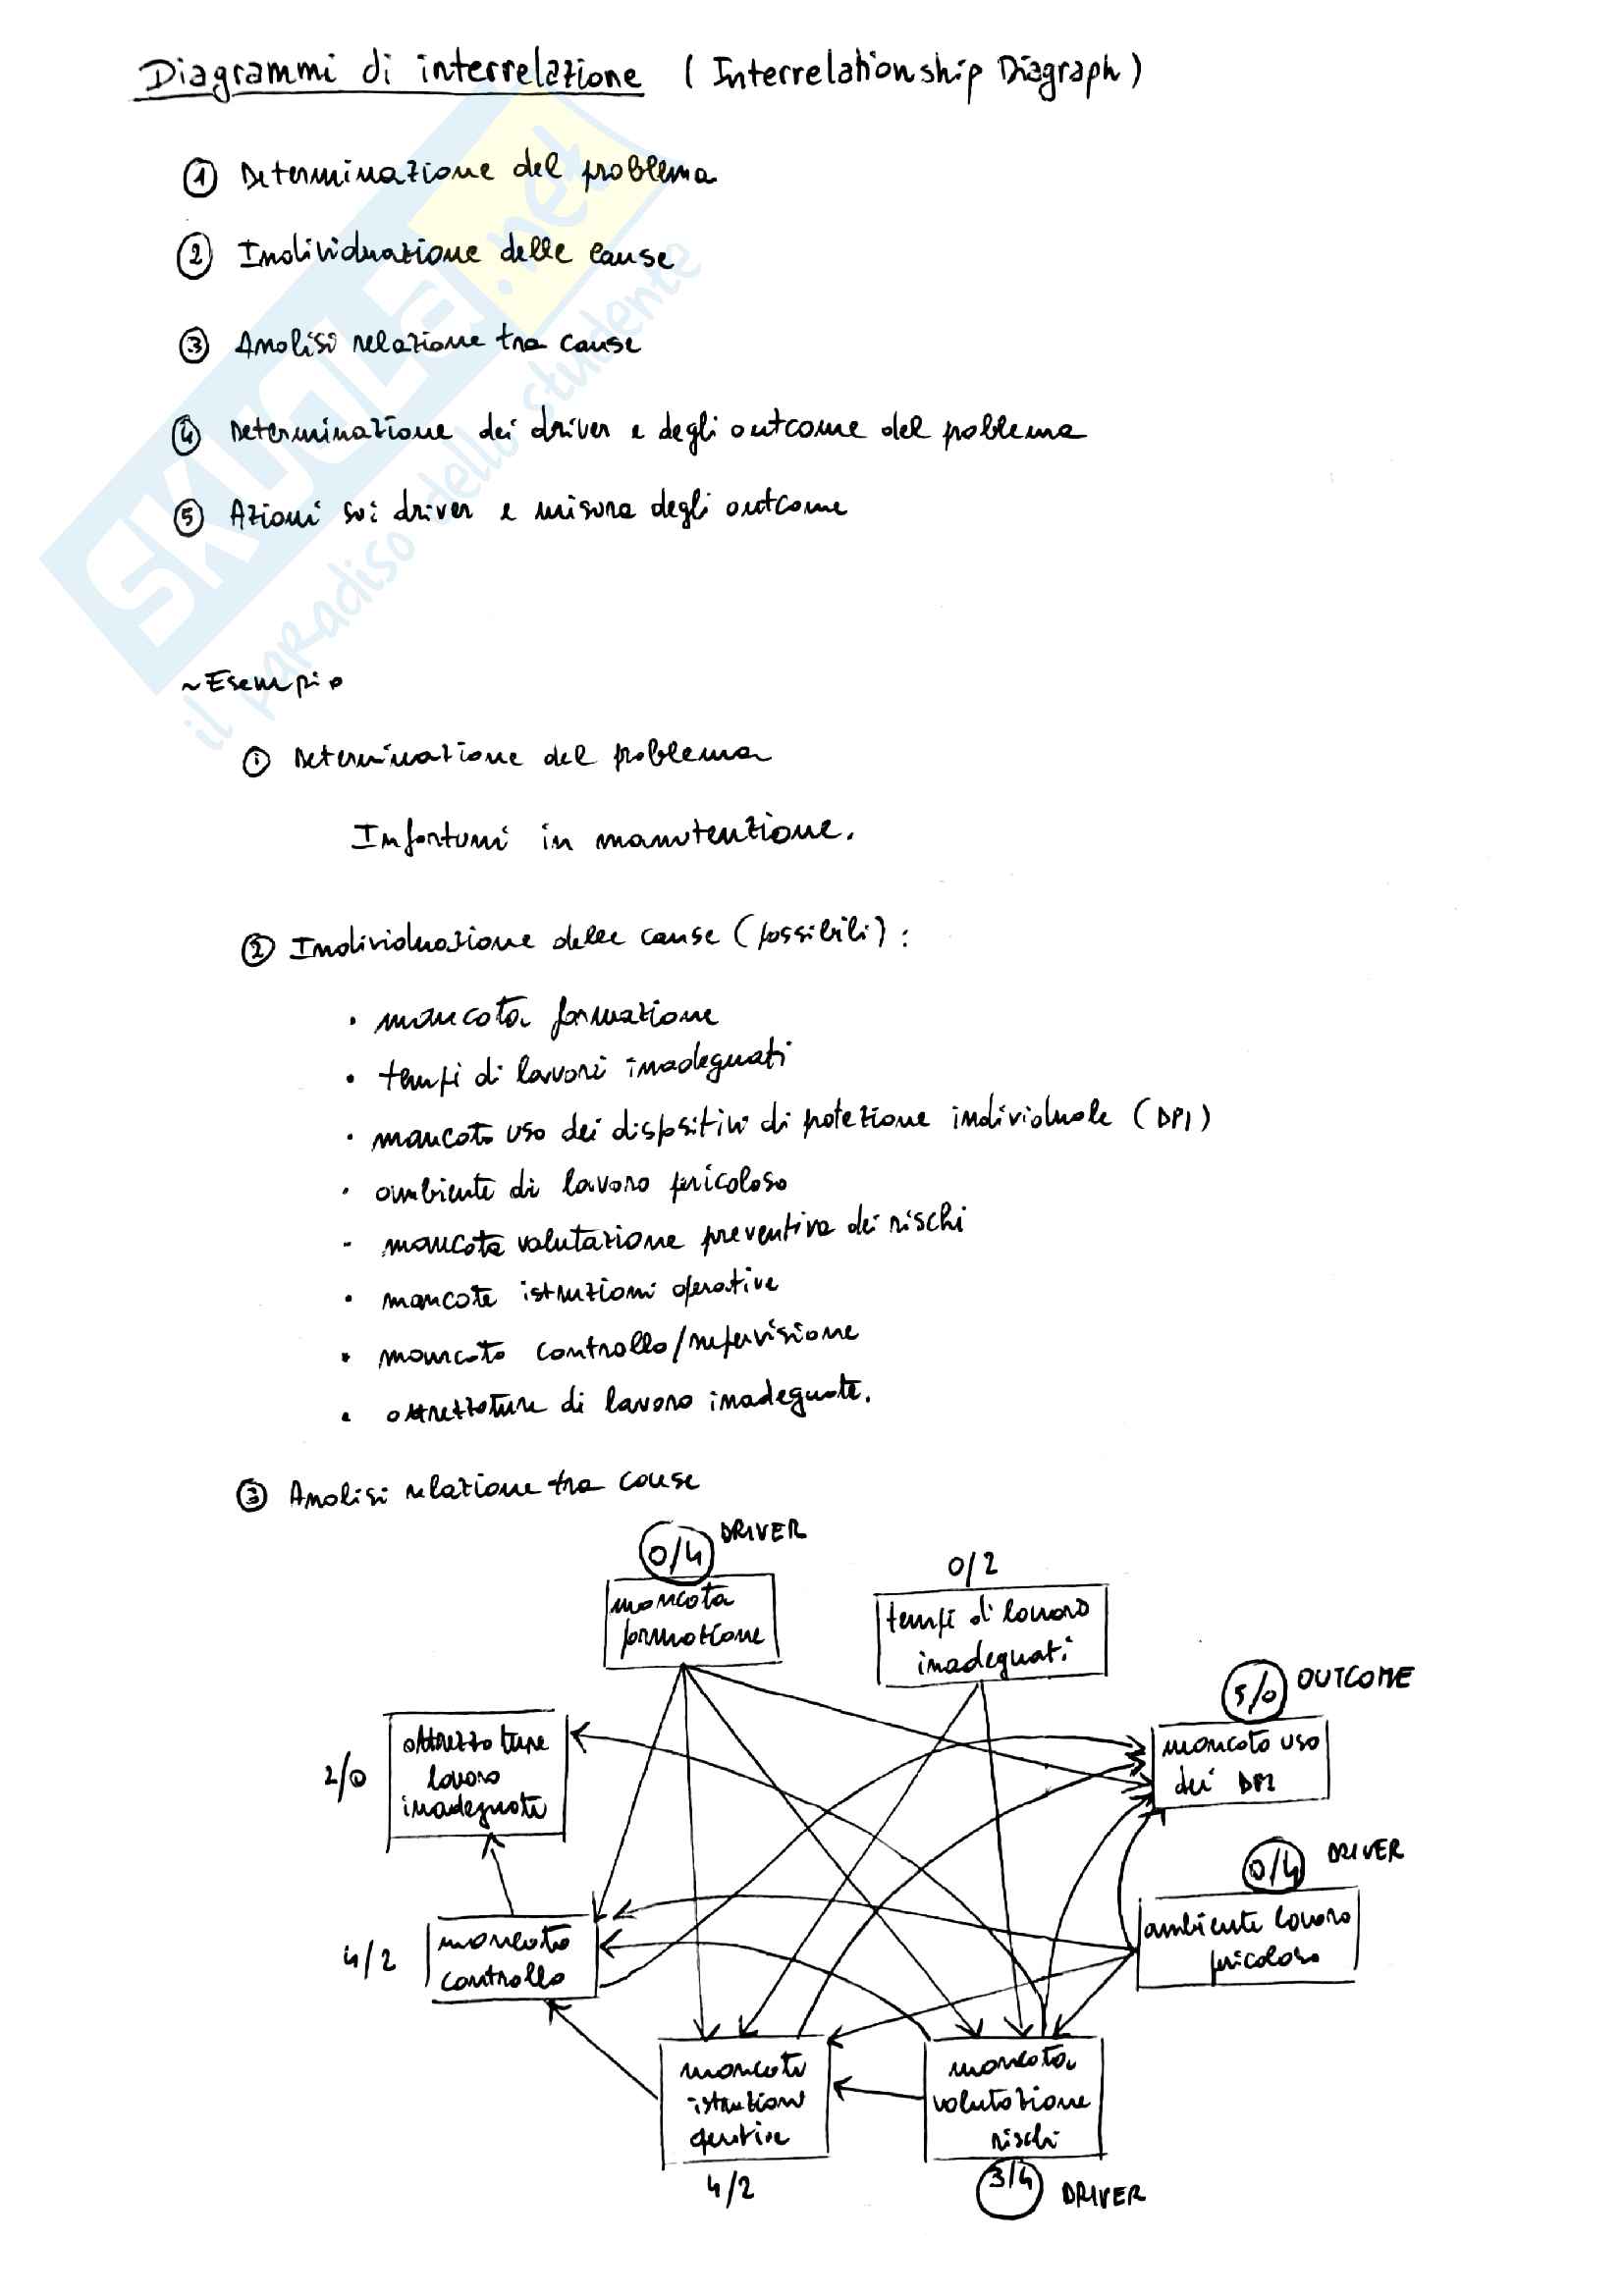 Diagrammi di interrelazione (Interrelationship Diagraph)
① Determinazione del problema
② Individuazione delle cause
③ Analisi relazione tra cause
④ Determinazione dei driver e degli outcome del problema
⑤ Azioni sui driver e misura degli outcome
SKUOLA.net
il paradiso dello studente
~Esempio
① Determinazione del problema
Infortuni in manutenzione.
② Individuazione delle cause (possibili):
• mancata formazione
• tempi di lavori inadeguati
• mancato uso dei dispositivi di protezione individuale (DPI)
• ambiente di lavoro pericoloso
- mancata valutazione preventiva dei rischi
• mancate istruzioni operative
• mancato controllo/supervisione
• attrezzature di lavoro inadeguate.
③ Analisi relazione tra cause
0/4 DRIVER
mancata
formazione
0/2
tempi di lavoro
inadeguati
5/0 OUTCOME
mancato uso
dei DPI
2/0
attrezzature
lavoro
inadeguate
0/4 DRIVER
ambiente lavoro
pericoloso
4/2
mancato
controllo
mancate
istruzioni
operative
4/2
mancata
valutazione
rischi
3/4 DRIVER